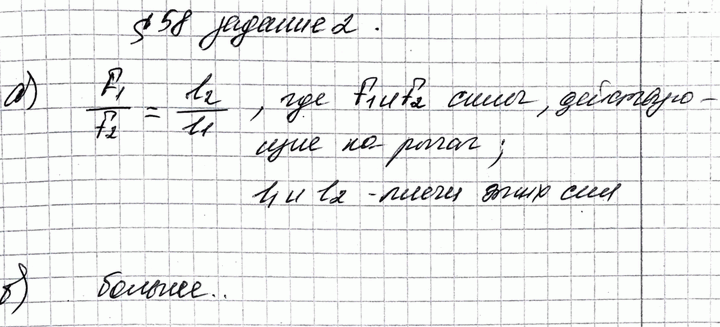 §58 задание 2.
а) F₁/F₂ = l₂/l₁, где F₁ и F₂ силы, действую-
щие на рычаг;
l₁ и l₂ - плечи этих сил
б) больше..